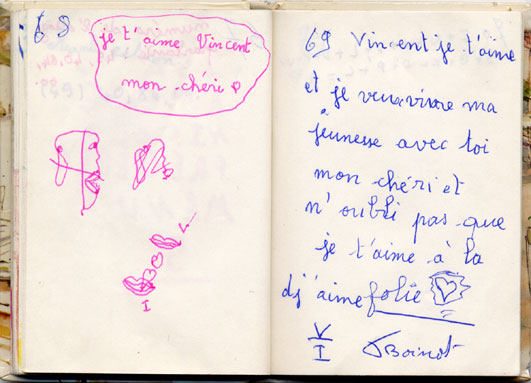 68
je t'aime Vincent
mon chéri
V
I
69 Vincent je t'aime
et je veux vivre ma
jeunesse avec toi
mon chéri et
n'oubli pas que
je t'aime à la
dj'aime folie
V
I